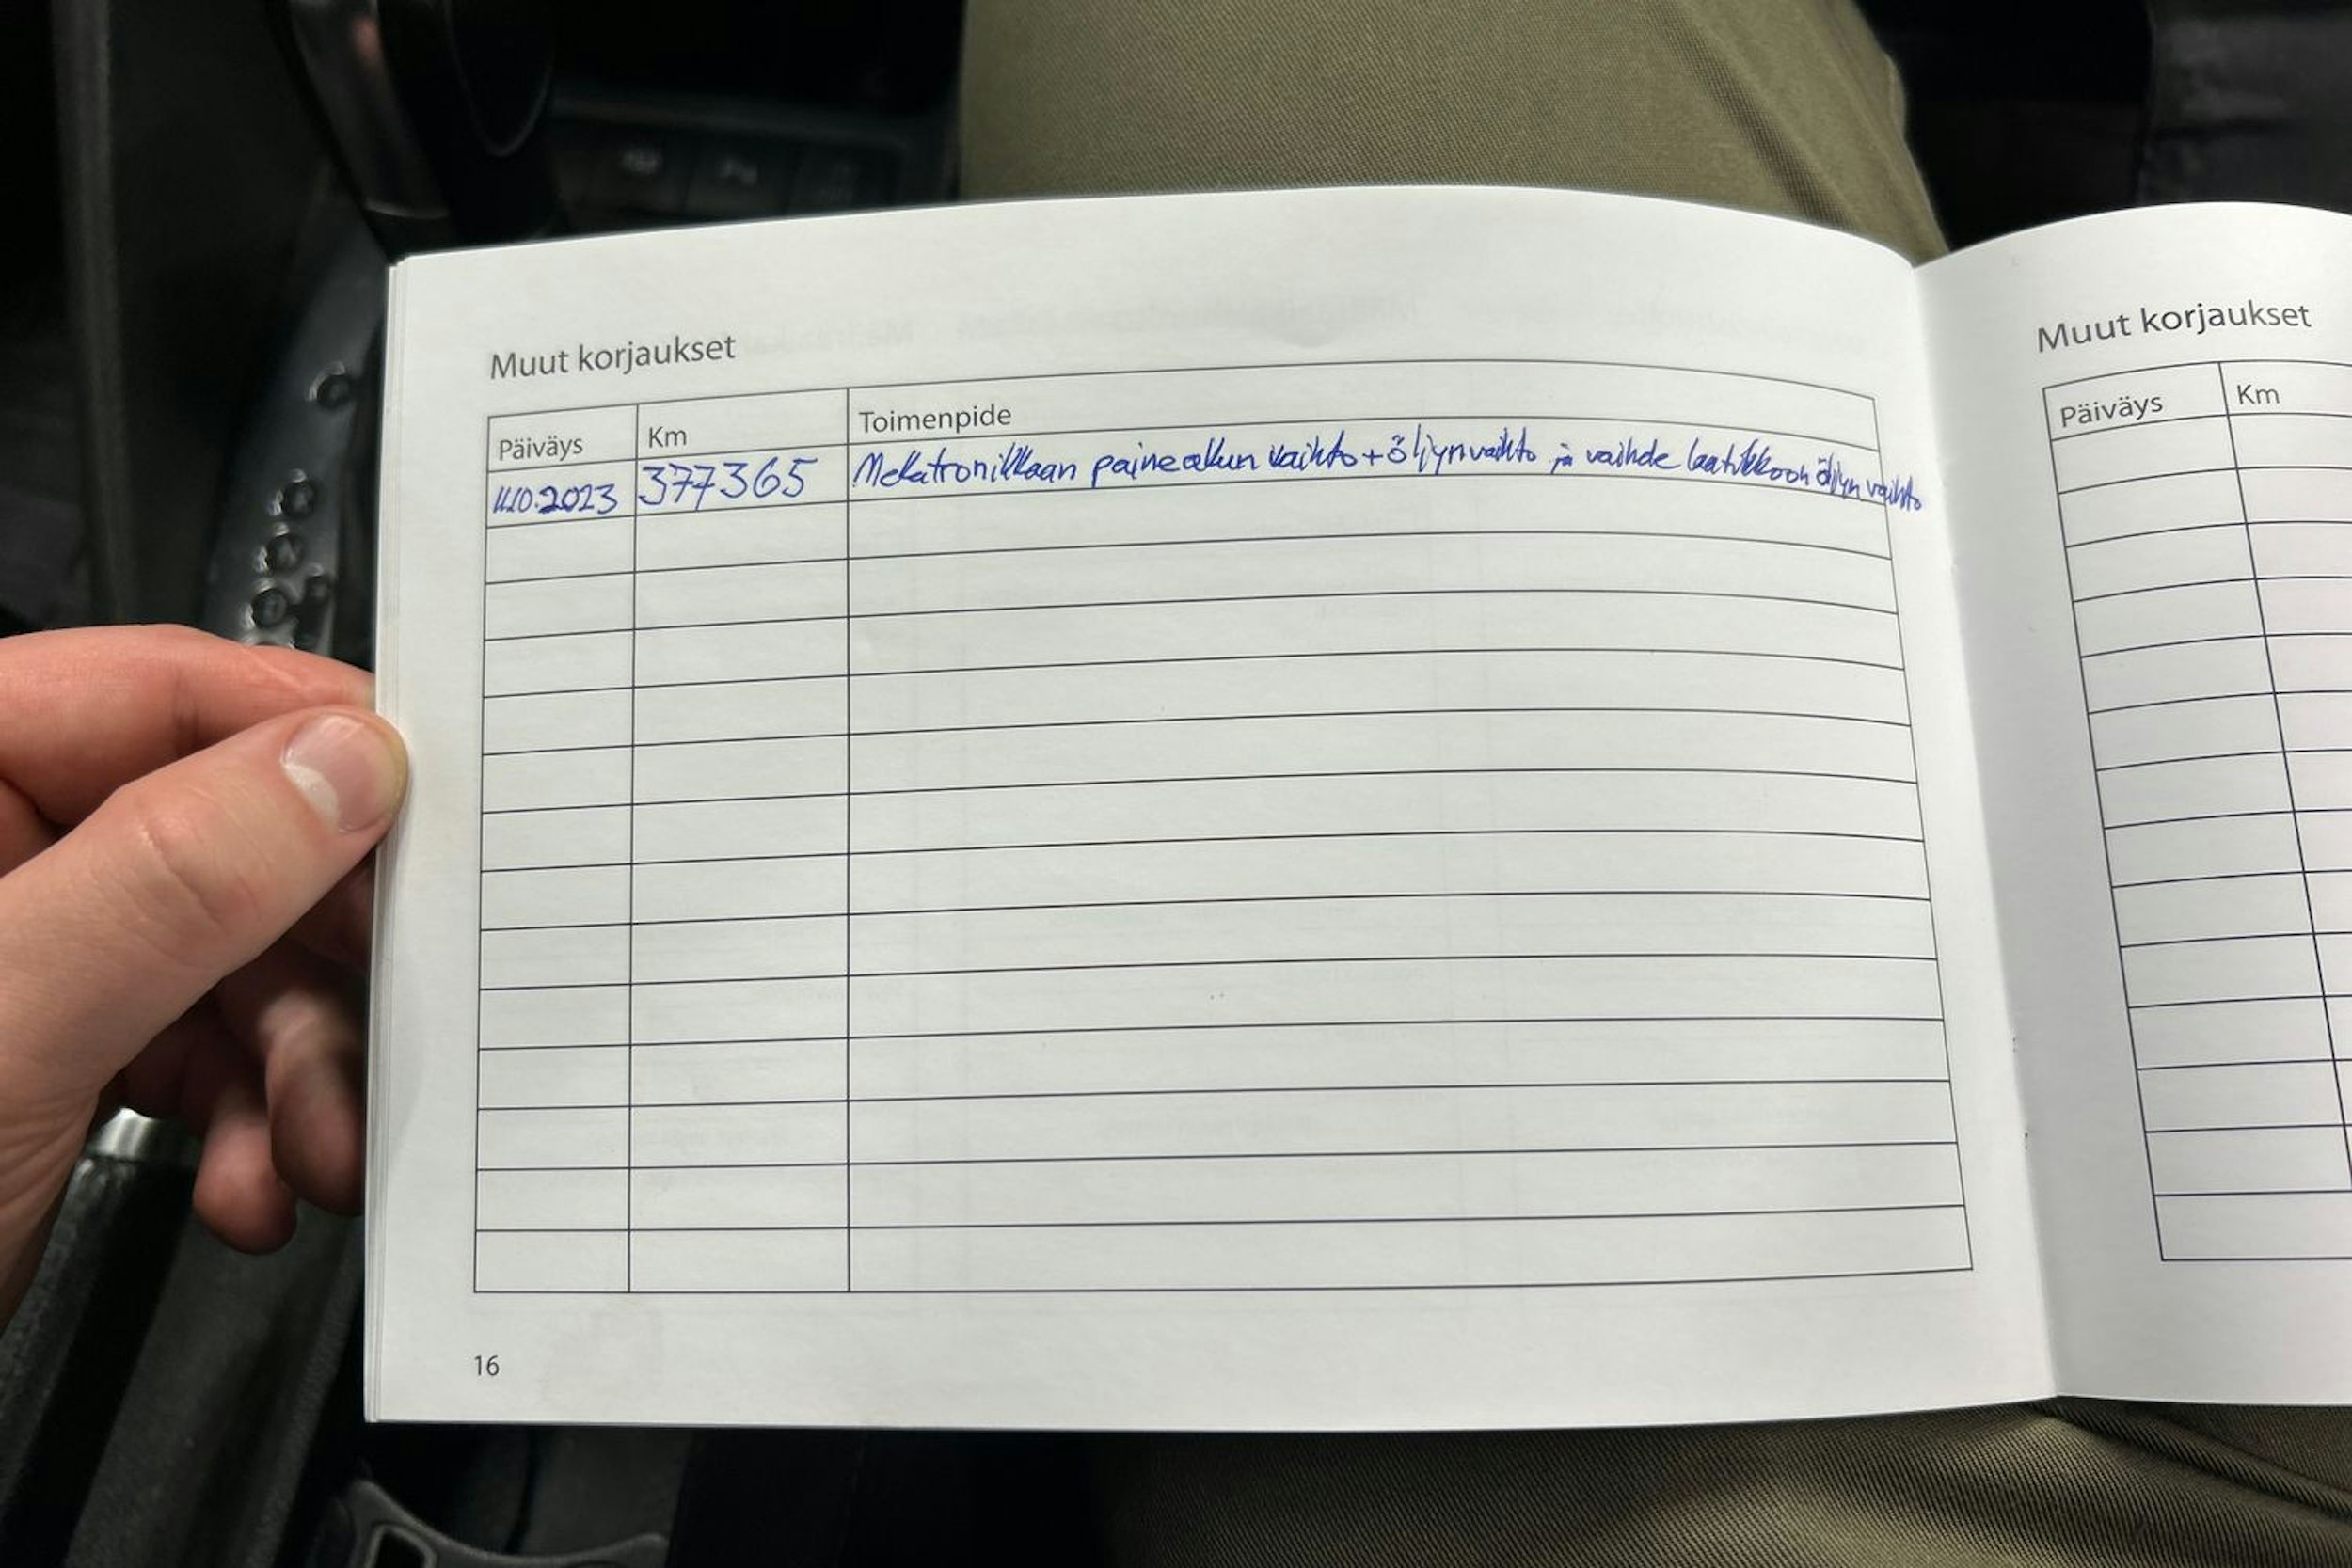 Muut korjaukset
Päiväys Km Toimenpide
11.10.2023 377365 Mekatroniikkaan paineakun vaihto + öljynvaihto ja vaihde laatikkoon öljyn vaihto
16
Muut korjaukset
Päiväys Km